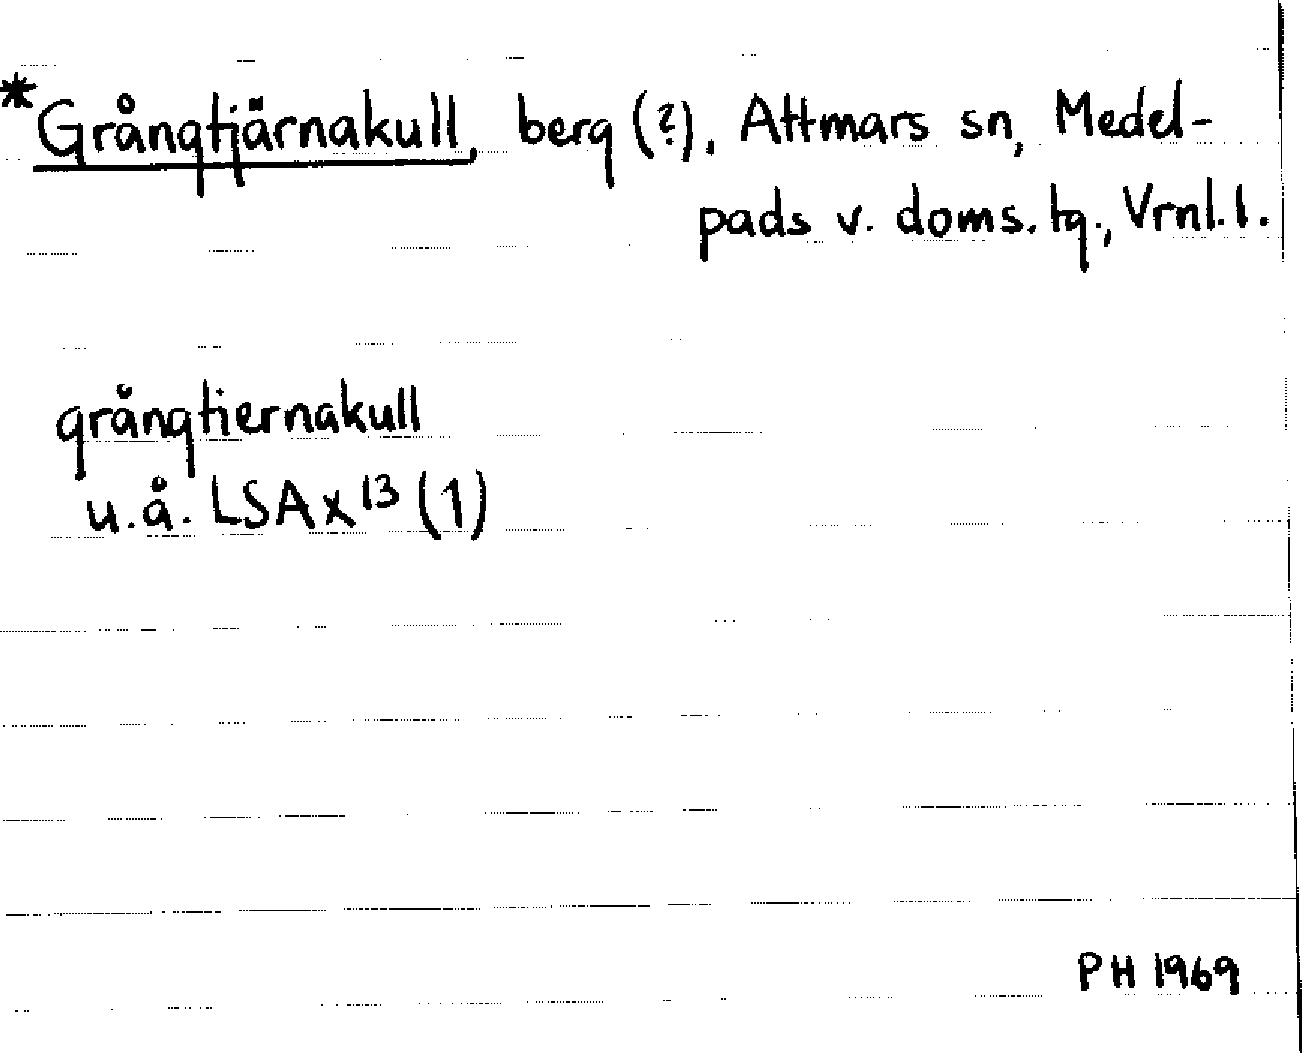 *Grångtjärnakull, berg (?), Attmars sn, Medel-
pads v. doms. tg., Vrnl. l.
grångtiernakull
u.å. LSA X 13 (1)
PH 1969